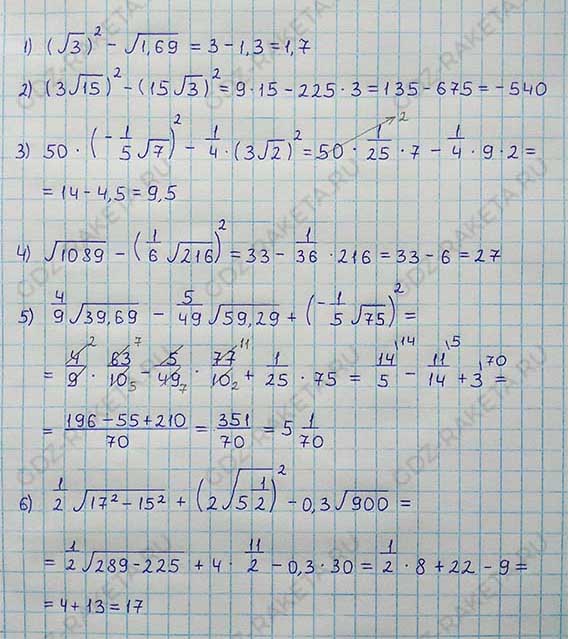 1) (√3)² − √1,69 = 3 − 1,3 = 1,7
2) (3√15)² − (15√3)² = 9·15 − 225·3 = 135 − 675 = −540
3) 50 · (−1/5 √7)² − 1/4 · (3√2)² = 50 ² · 1/25 · 7 − 1/4 · 9 · 2 =
= 14 − 4,5 = 9,5
4) √1089 − (1/6 √216)² = 33 − 1/36 · 216 = 33 − 6 = 27
5) 4/9 √39,69 − 5/49 √59,29 + (−1/5 √75)² =
= 4 ²/9 · 63 ⁷/10 ₅ − 5/49 ₇ · 77 ¹¹/10 ₂ + 1/25 · 75 = 14/5 \14 − 11/14 \5 + 3 \70 =
= 196 − 55 + 210/70 = 351/70 = 5 1/70
6) 1/2 √17² − 15² + (2√5 1/2)² − 0,3√900 =
= 1/2 √289 − 225 + 4 · 11/2 − 0,3 · 30 = 1/2 · 8 + 22 − 9 =
= 4 + 13 = 17
GDZ-RAKETA.RU